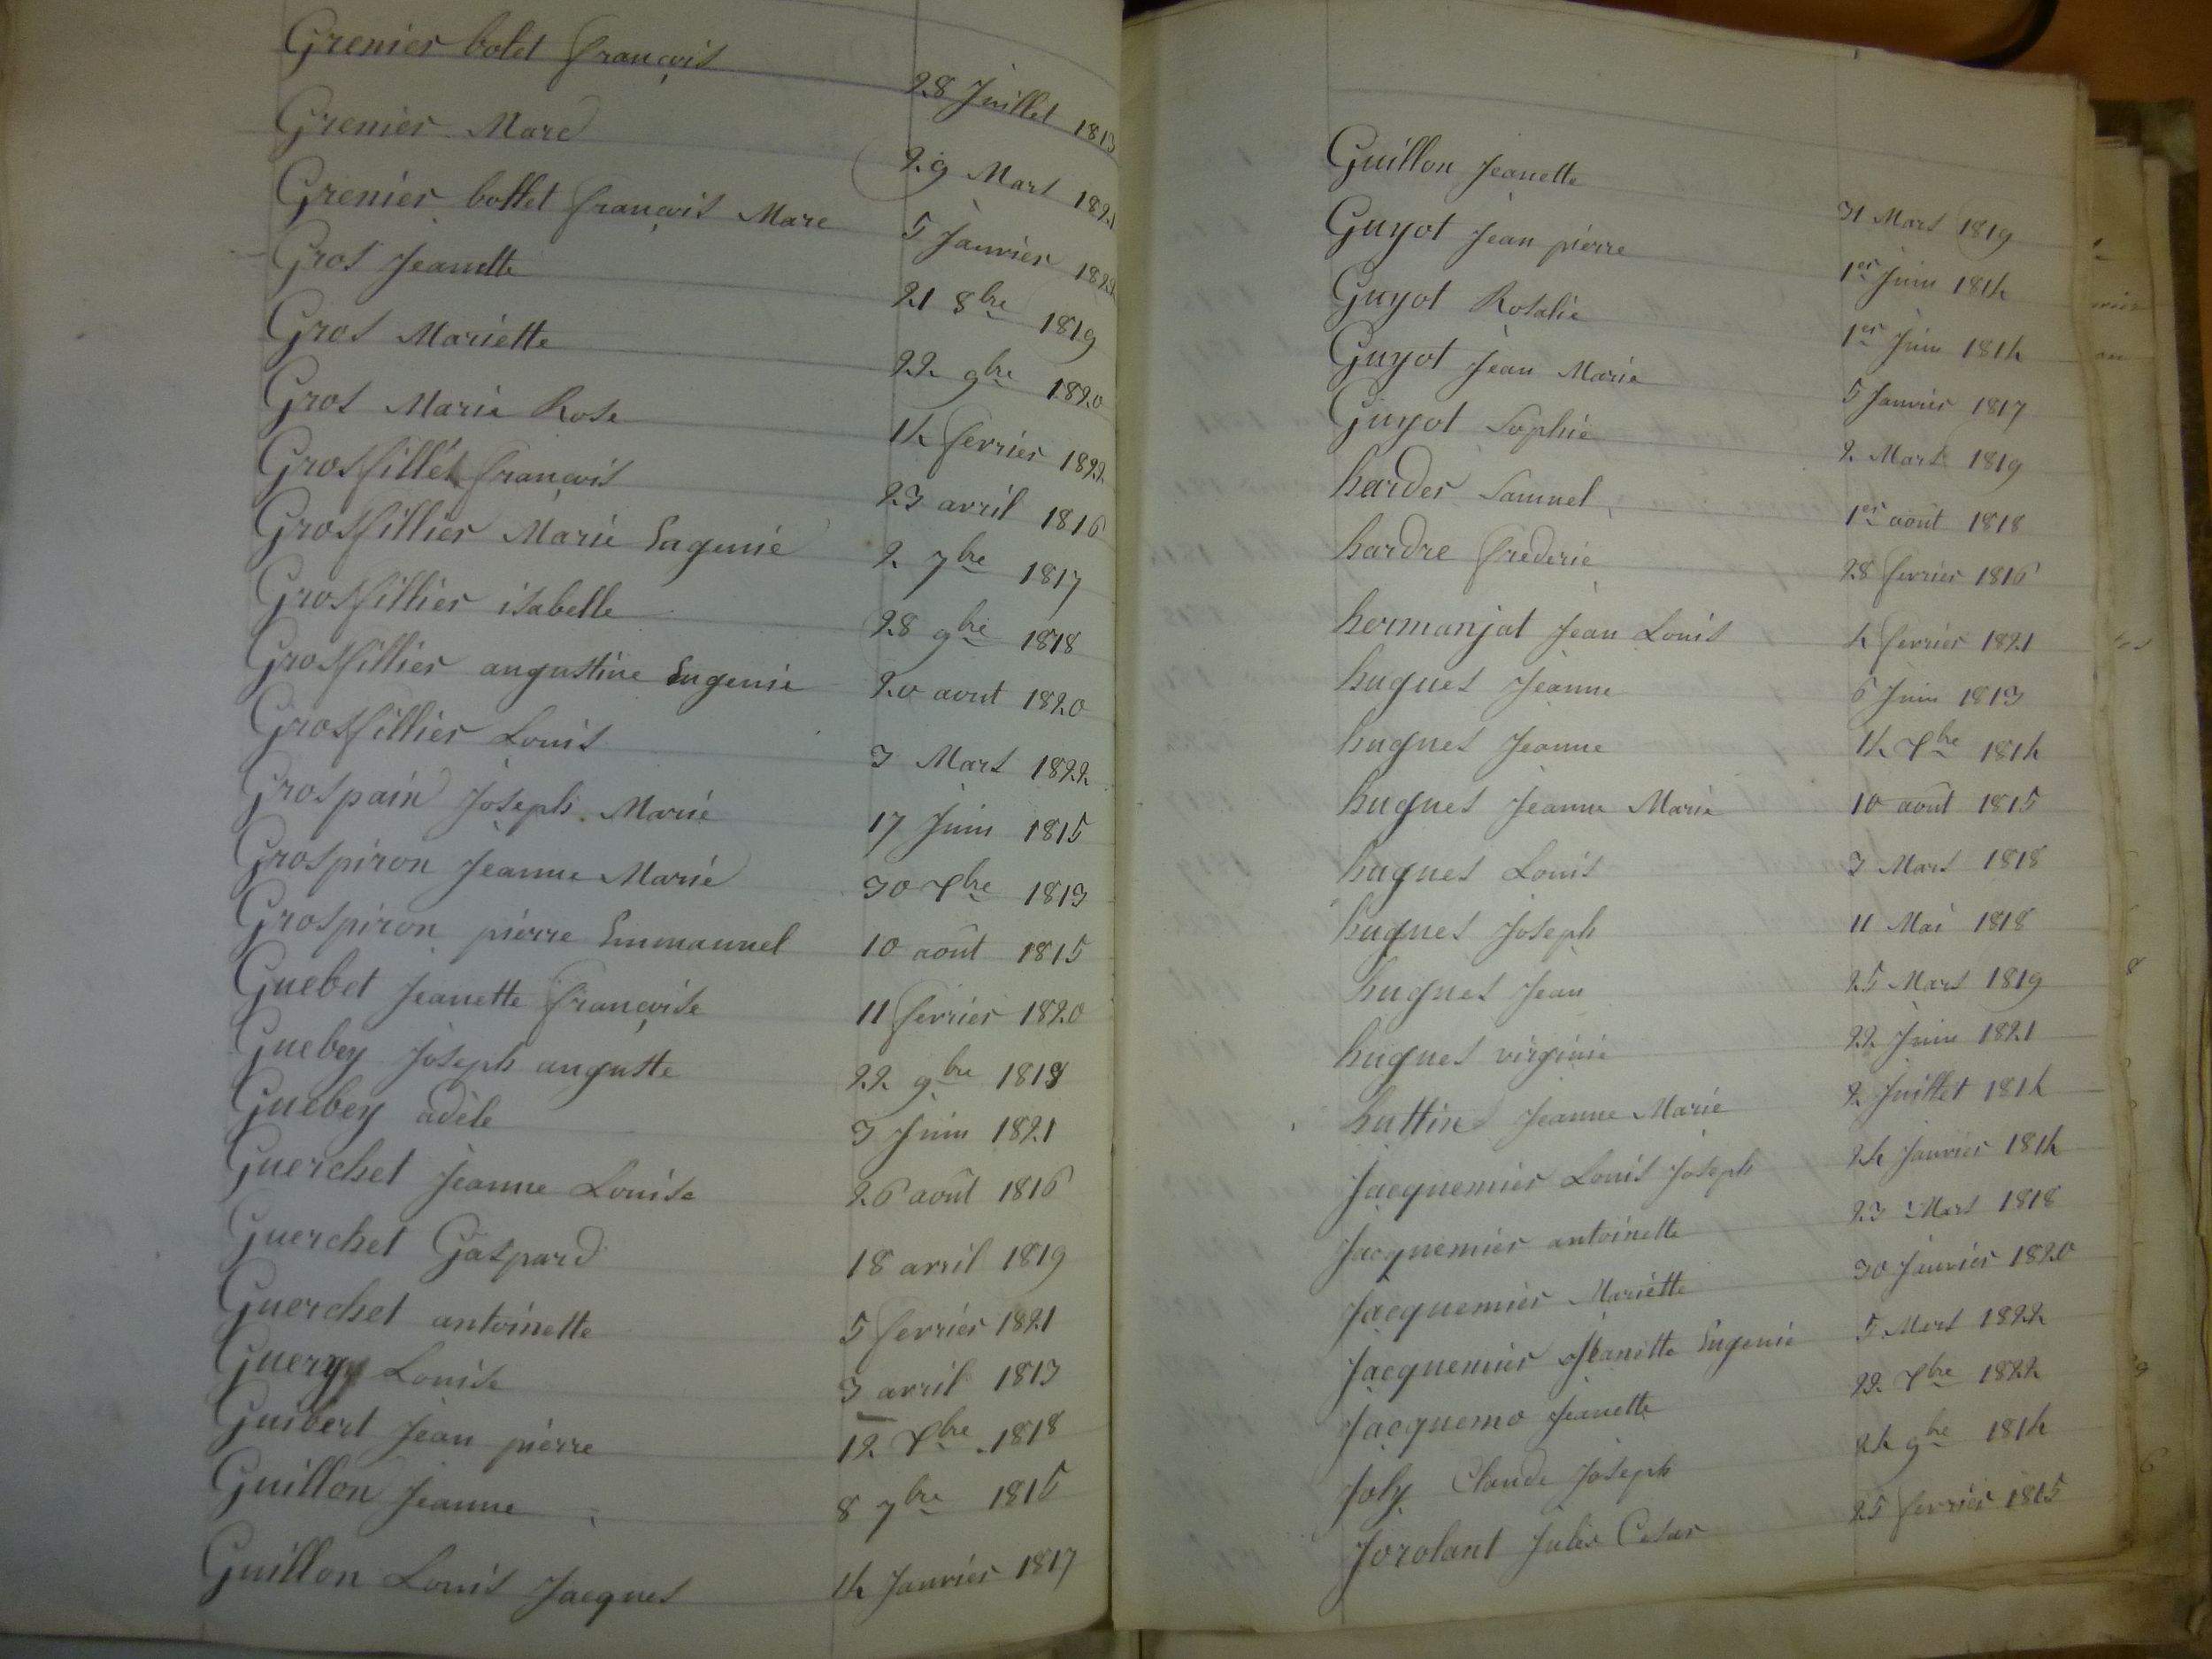 Grenier bolet françois 28 Juillet 1813
Grenier Marc 29 Mars 1821
Grenier bollet françois Marc 5 Janvier 1822
Gros Jeanette 21 8bre 1819
Gros Mariette 22 9bre 1820
Gros Marie Rose 14 fevrier 1822
Grosfillet françois 23 avril 1816
Grosfillier Marie Eugenie 2 7bre 1817
Grosfillier isabelle 28 9bre 1818
Grosfillier augustine Eugenie 20 aout 1820
Grosfillier Louis 3 Mars 1822
Grospain Joseph Marie 17 Juin 1815
Grospiron Jeanne Marie 30 Xbre 1813
Grospiron pierre Emmanuel 10 août 1815
Guebet Jeanette françoise 11 fevrier 1820
Guebey Joseph auguste 22 9bre 1818
Guebey adèle 3 Juin 1821
Guerchet Jeanne Louise 26 août 1816
Guerchet Gaspard 18 avril 1819
Guerchet antoinette 5 fevrier 1821
Guery Louise 3 avril 1813
Guibert Jean pierre 12 Xbre 1818
Guillon Jeanne 8 7bre 1815
Guillon Louis Jacques 14 Janvier 1817
Guillon Jeanette 31 Mars 1819
Guyot Jean pierre 1er Juin 1814
Guyot Rosalie 1er Juin 1814
Guyot Jean Marie 5 Janvier 1817
Guyot Sophie 2 Mars 1819
harder Samuel 1er août 1818
hardre frederic 28 fevrier 1816
hermanjat Jean Louis 4 fevrier 1821
hugues Jeanne 6 Juin 1813
hugues Jeanne 14 Xbre 1814
hugues Jeanne Marie 10 août 1815
hugues Louis 3 Mars 1818
hugues Joseph 11 Mai 1818
hugues Jean 25 Mars 1819
hugues virginie 22 Juin 1821
huttin Jeanne Marie 2 Juillet 1814
Jacquemier Louis Joseph 24 Janvier 1814
Jacquemier antoinette 23 Mars 1818
Jacquemier Mariette 30 Janvier 1820
Jacquemier Jeanette Eugenie 5 Mars 1822
Jacquemo Jeanette 22 Xbre 1822
Joly Claude Joseph 24 9bre 1814
Jorolant Jules Cesar 25 fevrier 1815